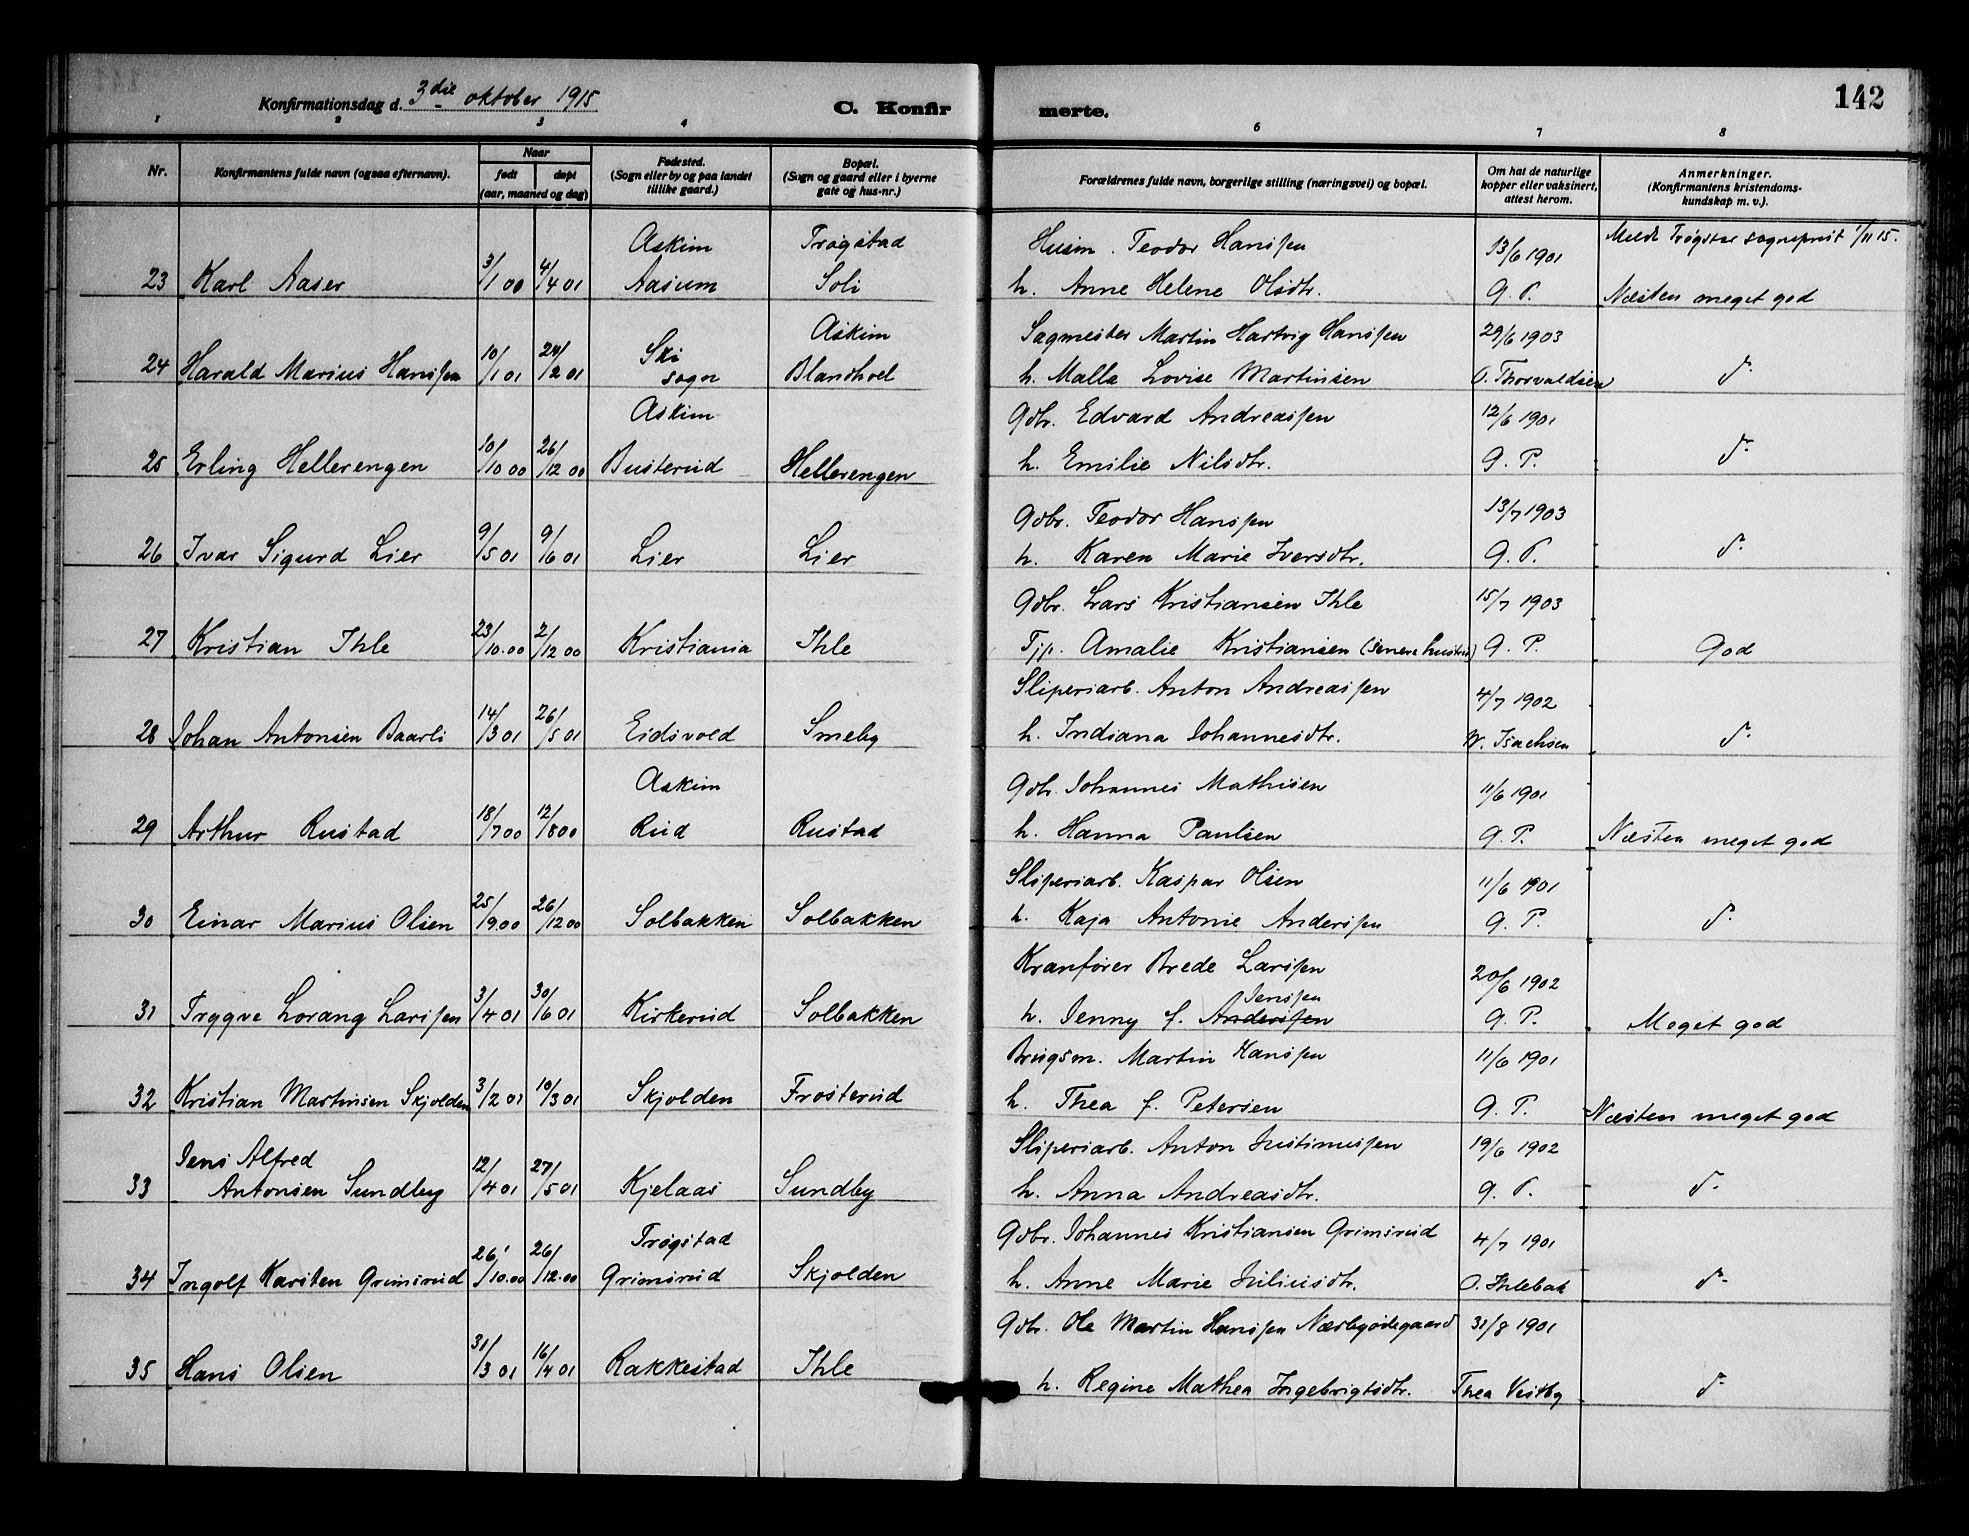 Konfirmationsdag d. 3die oktober 1915
C. Konfir
merte.
142
1 2 3 4 6 7 8
Nr.
Konfirmantens fulde navn (ogsaa efternavn).
Naar
født døpt
(aar, maaned og dag)
Fødested.
(Sogn eller by og paa landet
tillike gaard.)
Bopæl.
(Sogn og gaard eller i byerne
gate og hus-nr.)
Forældrenes fulde navn, borgerlige stilling (næringsvei) og bopæl.
Om hat de naturlige
kopper eller vaksinert,
attest herom.
Anmerkninger.
(Konfirmantens kristendoms-
kundskap m. v.).
Askim Trøgstad Husm. Teodor Hanssen 13/6 1901 Meldt Trøgstad sogneprest 1/11 15.
23 Karl Aaser 3/1 00 4/4 01 Aasum Soli h. Anne Helene Olsdtr. G. P. Næsten meget god
Askim Sagmester Martin Hartvig Hanssen 29/6 1903
24 Harald Marius Hanssen 10/1 01 24/2 01 Ski sogn h. Malla Lovise Martinsen O. Thorvaldsen d-
Askim Gdbr. Edvard Andreassen 12/6 1901
25 Erling Hellerengen 10/10 00 26/12 00 Busterud Hellerengen h. Emilie Nilsdtr. G. P. d-
Gdbr. Teodor Hanssen 13/7 1903
26 Ivar Sigurd Lier 9/5 01 9/6 01 Lier Lier h. Karen Marie Iversdtr. G. P. d-
Gdbr. Lars Kristiansen Ihle 15/7 1903
27 Kristian Ihle 23/10.00 2/12 00 Kristiania Ihle Tjp. Amalie Kristiansen (senere hustru) G. P. God
Sliperiarb. Anton Andreassen 4/7 1902
28 Johan Antonsen Baarli 14/3 01 26/5 01 Eidsvold Smeby h. Indiana Johannesdtr. W. Isachsen d-
Askim Gdbr. Johannes Mathisen 11/6 1901
29 Arthur Rustad 18/7 00 12/8 00 Rud Rustad h. Hanna Paulsen G. P. Næsten meget god
Sliperiarb. Kaspar Olsen 11/6 1901
30 Einar Marius Olsen 25/9 00 26/12 00 Solbakken Solbakken h. Kaja Antonie Anderssen G. P. d-
Kranfører Brede Larssen 20/6 1902
Jenssen
31 Trygve Lorang Larssen 3/4 01 30/6 01 Kirkerud Solbakken h. Jenny f. Anderssen G. P. Meget god
Brugsm. Martin Hanssen 11/6 1901
32 Kristian Martinsen Skjolden 3/2 01 10/3 01 Skjolden Frosterud h. Thea f. Petersen G. P. Næsten meget god
Jens Alfred Sliperiarb. Anton Justinussen 19/6 1902
33 Antonsen Sundby 12/4 01 27/5 01 Kjelaas Sundby h. Anna Andreasdtr. G. P. d-
Trøgstad Gdbr. Johannes Kristiansen Grimsrud 4/7 1901
34 Ingolf Karsten Grimsrud 26/10.00 26/12.00 Grimsrud Skjolden h. Anne Marie Juliusdtr. O. Ihlebæk d-
Gdbr. Ole Martin Hanssen Nærbyødegaard 31/8 1901
35 Hans Olsen 31/3 01 16/4 01 Rakkestad Ihle h. Regine Mathea Ingebrigtsdtr. Thea Vestby d-